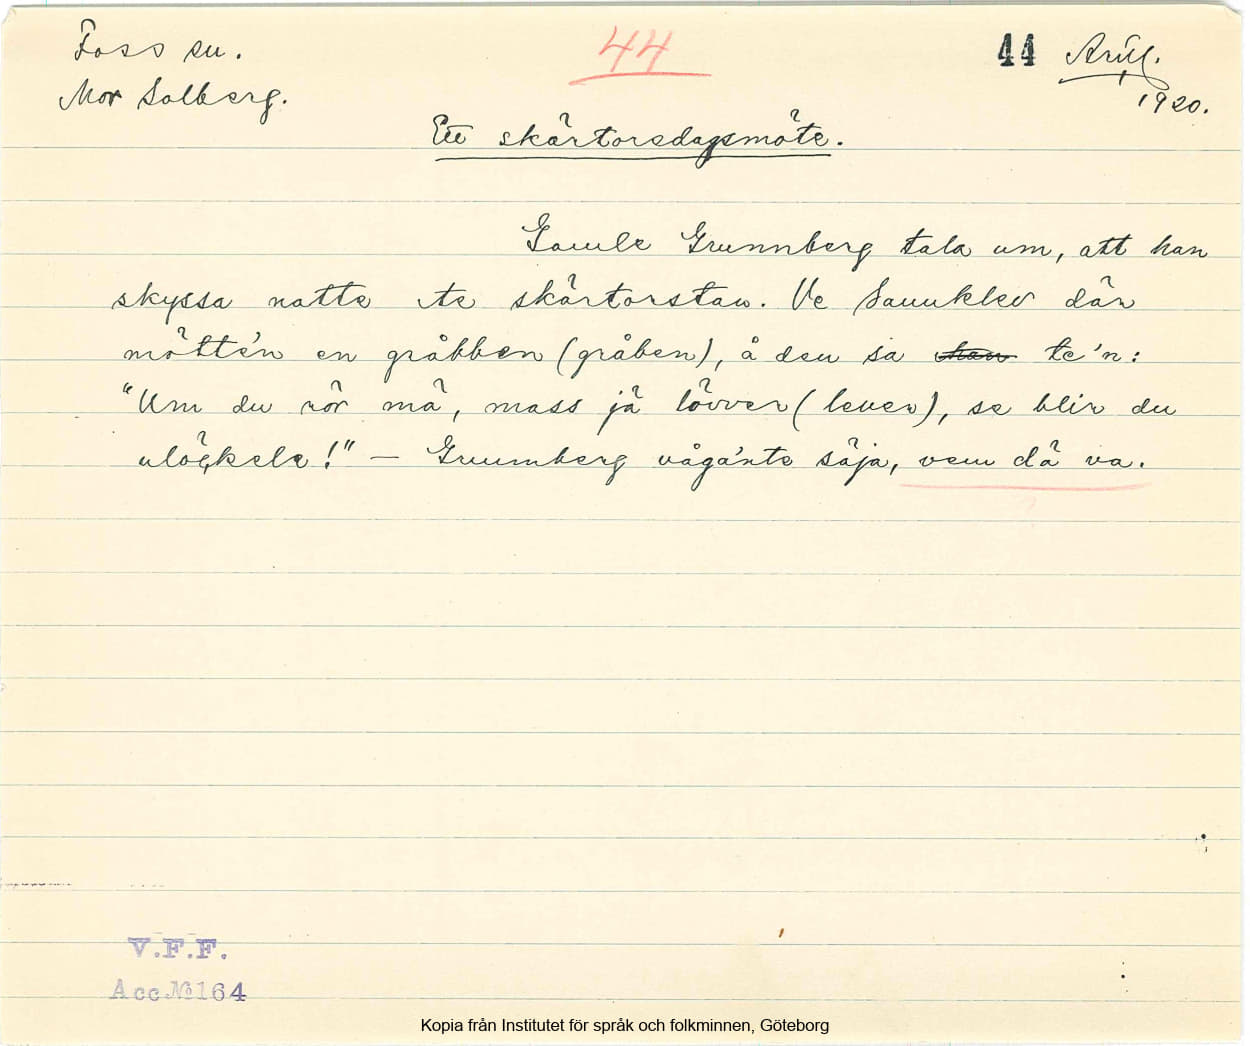 Foss sn. 44 44 Arill.
Mor Solberg. 1920.
Ett skärtorsdagsmöte.
Gamle Grunnberg tala um, att han
skyssa natte te skärtorstaw. Ve Saunklev där
mötte'n en gråbben (gråben), å den sa te'n:
"Um du rör mä, mass jä lövver (lever), se blir du
ulöckele!" — Grunnberg våga'nte säja, vem dä va.
V.F.F.
Acc № 164
Kopia från Institutet för språk och folkminnen, Göteborg